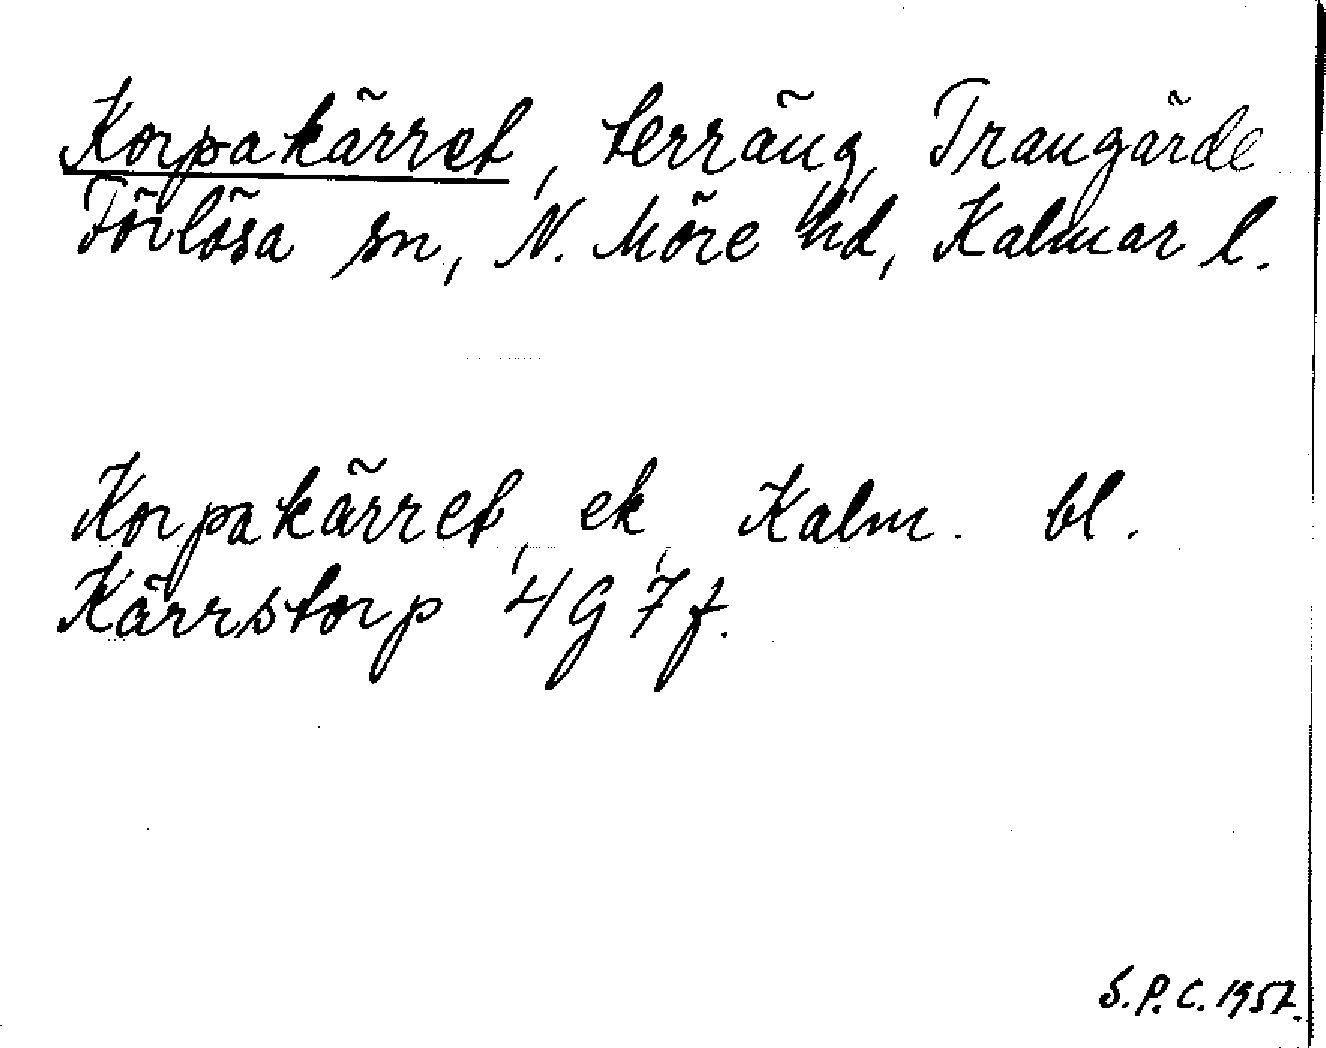 Korpakärret, terräng, Trangärde
Förlösa sn, N. Möre hd, Kalmar l.
Korpakärret, ek, Kalm. bl.
Kärrstorp 4G7f.
S.P.C. 1957.